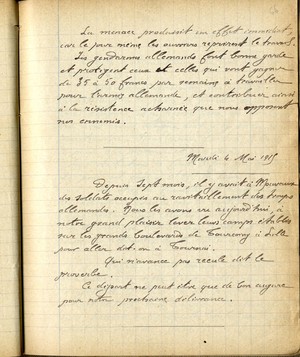 La menace produisit un effet immédiat,
car le jour même les ouvriers reprirent le travail.
Les gendarmes allemands font bonne garde
et protègent ceux et celles qui vont gagner
de 35 à 50 francs par semaine à travailler
pour l'armée allemande, et contribuer ainsi
à la résistance acharnée que nous opposent
nos ennemis.
Mardi 4 Mai 1915
Depuis sept mois, il y avait à Mouvaux
des soldats occupés au ravitaillement des troupes
allemandes. Nous les avons vu aujourd'hui, à
notre grand plaisir lever leurs camps établis
sur les grands boulevards de Tourcoing à Lille
pour aller dit-on à Tournai.
Qui n'avance pas recule dit le
proverbe.
Ce départ ne peut être que de bon augure
pour notre prochaine délivrance.